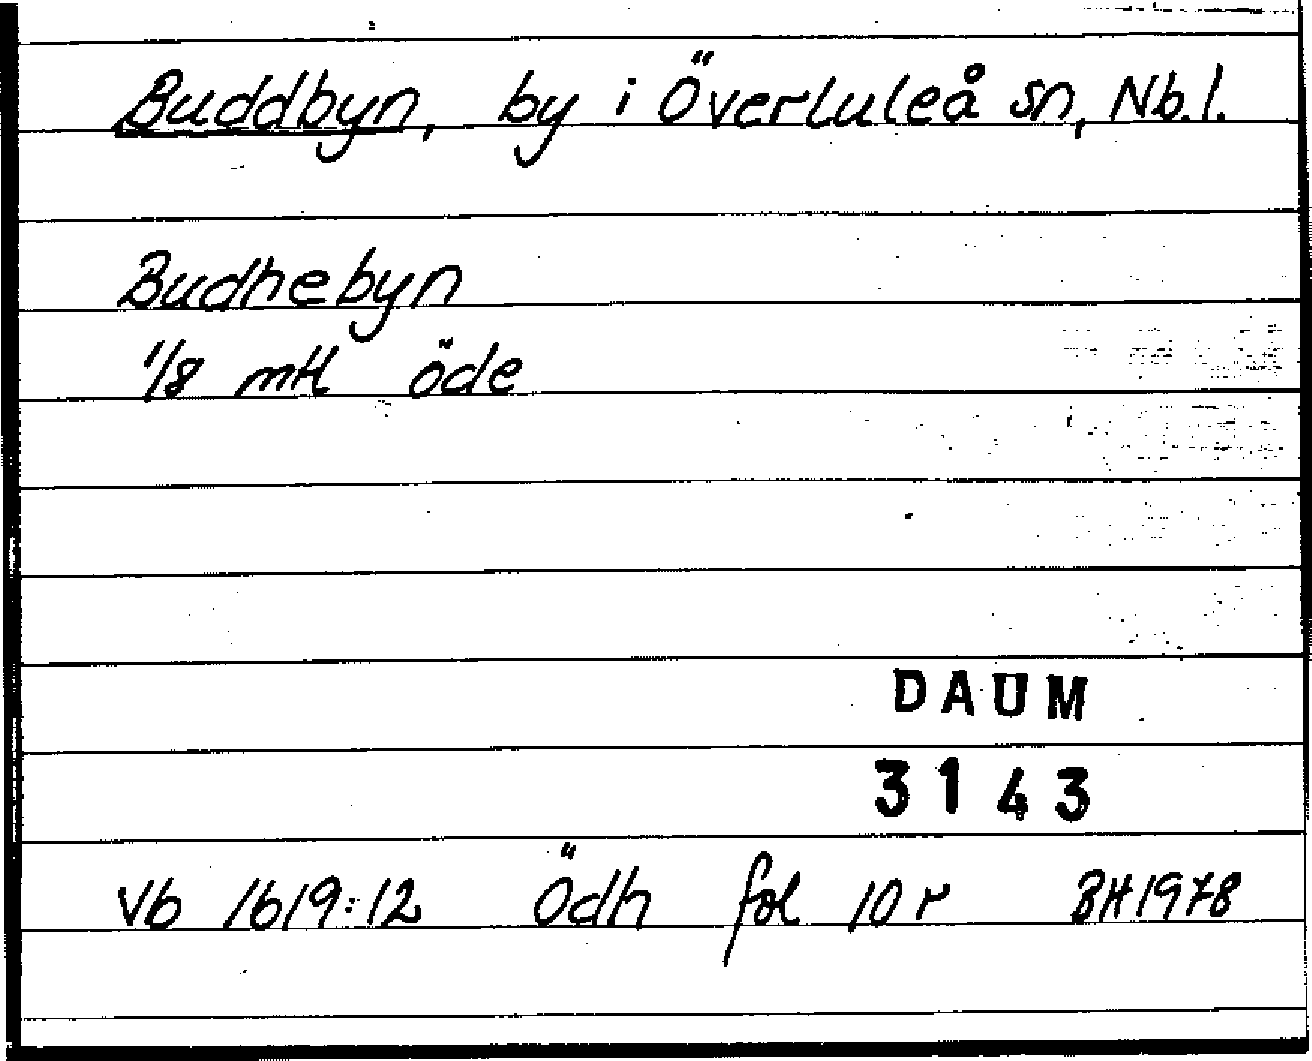 Buddbyn, by i Överluleå sn, Nb.l.
Budhebyn
1/8 mtl öde
DAUM
3143
Vb 1619:12 Ödh fol 10 r BH1978